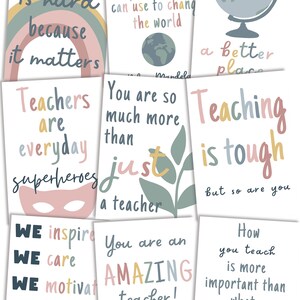 is hard
because
it matters
can use to change
the world
a better
place
Teachers
are
everyday
superheroes
You are so
much more
than
just
a teacher
Teaching
is tough
but so are you
WE inspire
WE care
WE motivat
You are an
AMAZING
teacher!
How
you teach
is more
important than
what